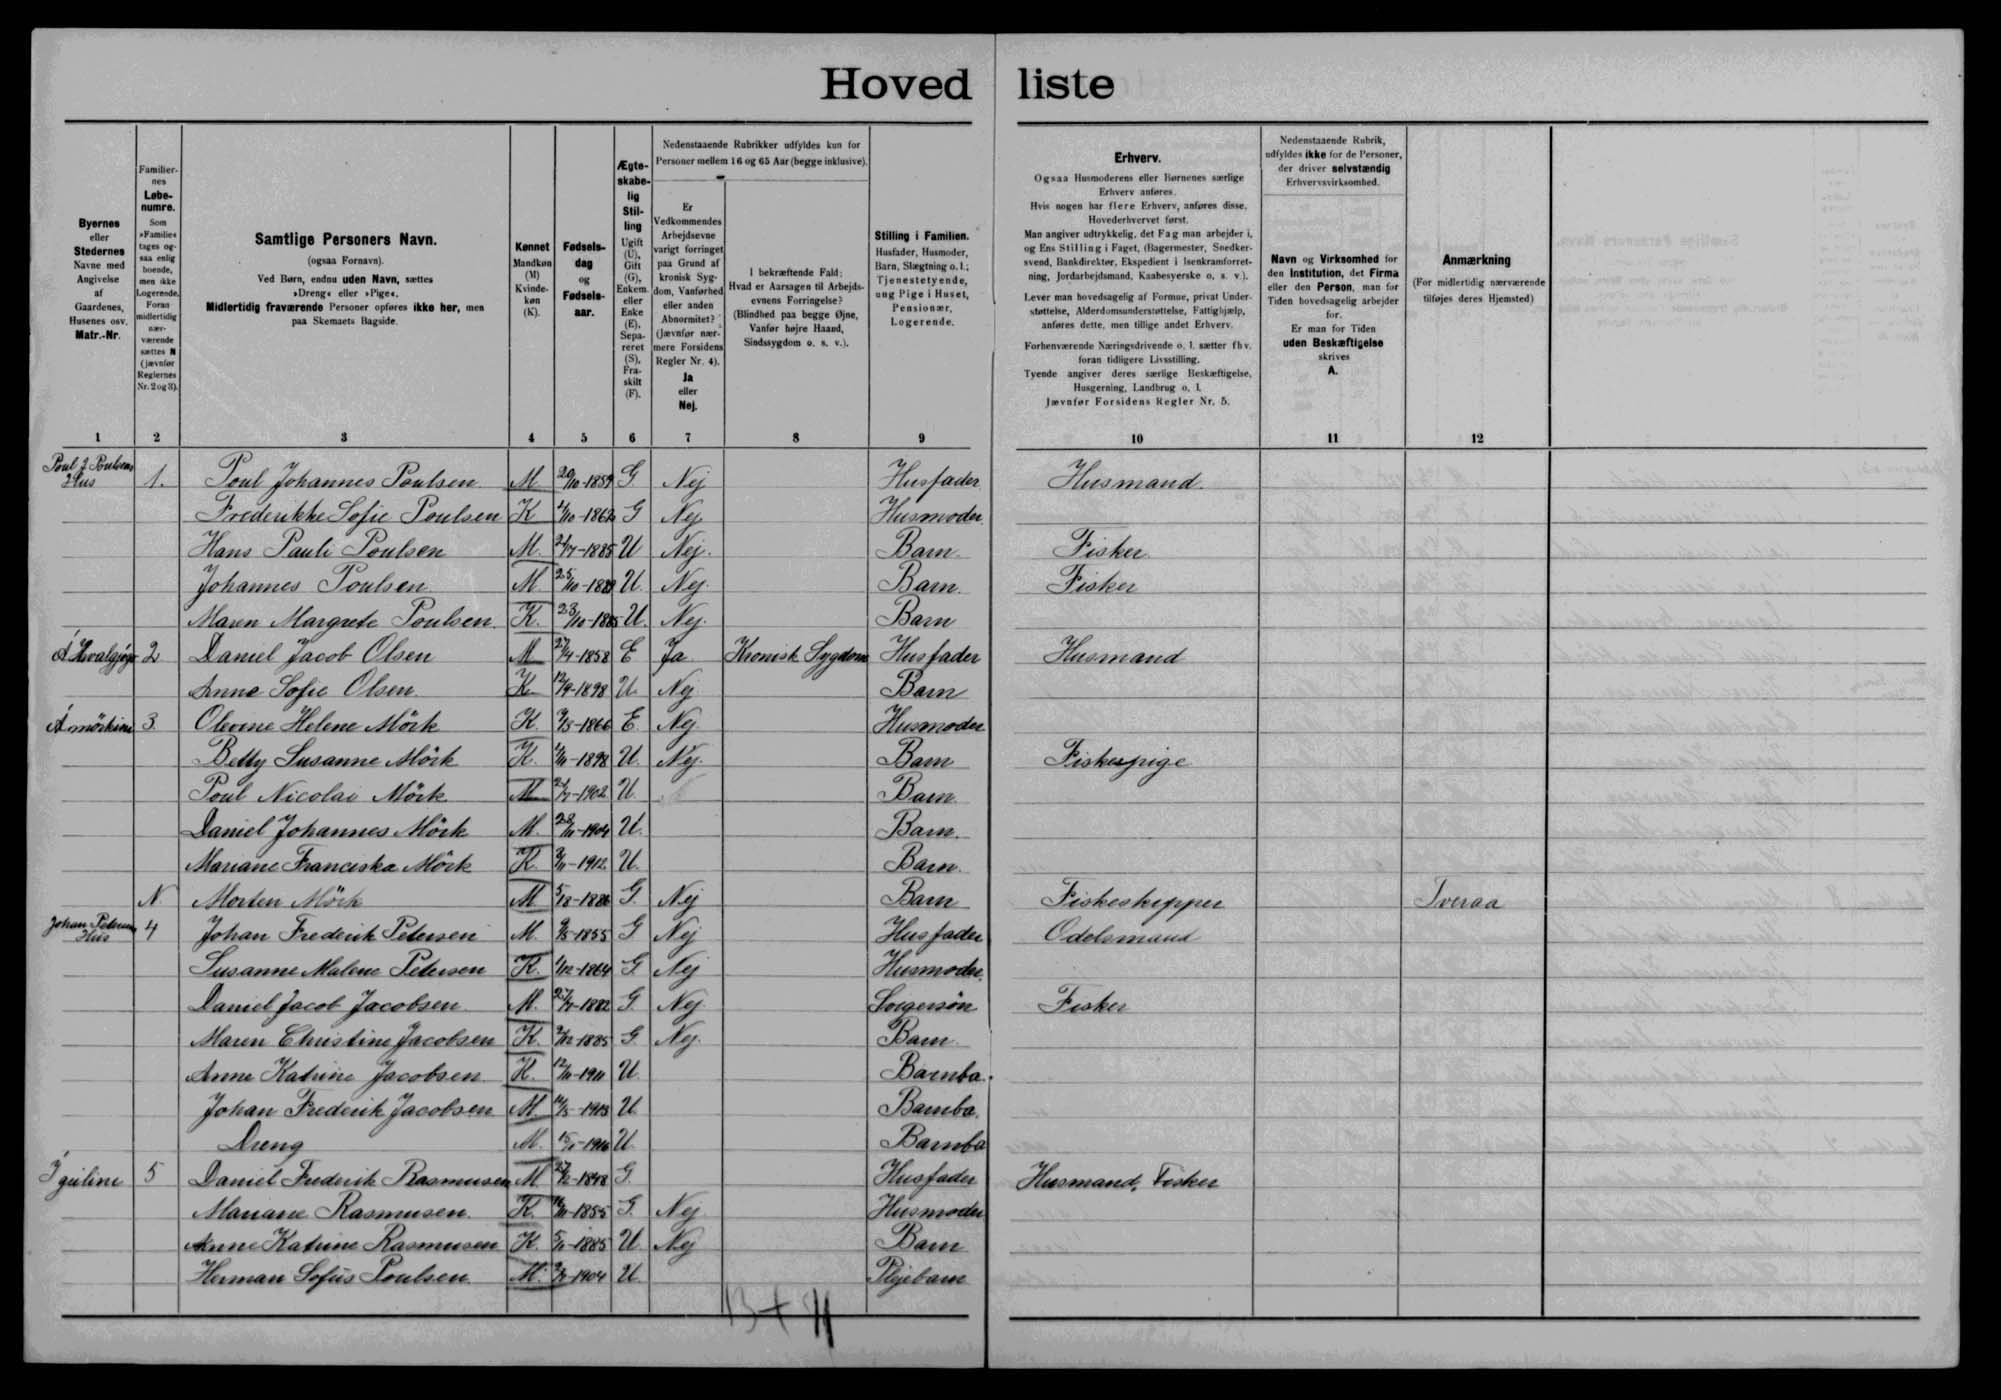 Hoved liste
Byernes
eller
Stedernes
Navne med
Angivelse
af
Gaardenes,
Husenes osv.
Matr.-Nr.
Familier-
nes
Løbe-
numre.
Som
»Familie«
tages og-
saa enlig
boende,
men ikke
Logerende.
Foran
midlertidig
nær-
værende
sættes N
(jævnfør
Reglernes
Nr. 2 og 3).
Samtlige Personers Navn.
(ogsaa Fornavn).
Ved Børn, endnu uden Navn, sættes
»Dreng« eller »Pige«.
Midlertidig fraværende Personer opføres ikke her, men
paa Skemaets Bagside.
Kønnet
Mandkøn
(M)
Kvinde-
køn
(K).
Fødsels-
dag
og
Fødsels-
aar.
Ægte-
skabe-
lig
Stil-
ling
Ugift
(U),
Gift
(G),
Enkem.
eller
Enke
(E),
Sepa-
reret
(S),
Fra-
skilt
(F).
Nedenstaaende Rubrikker udfyldes kun for
Personer mellem 16 og 65 Aar (begge inklusive).
Er
Vedkommendes
Arbejdsevne
varigt forringet
paa Grund af
kronisk Syg-
dom, Vanførhed
eller anden
Abnormitet?
(Jævnfør nær-
mere Forsidens
Regler Nr. 4).
Ja
eller
Nej.
I bekræftende Fald:
Hvad er Aarsagen til Arbejds-
evnens Forringelse?
(Blindhed paa begge Øjne,
Vanfør højre Haand,
Sindssygdom o. s. v.).
Stilling i Familien.
Husfader, Husmoder,
Barn, Slægtning o. l.;
Tjenestetyende,
ung Pige i Huset,
Pensionær,
Logerende.
Erhverv.
Ogsaa Husmoderens eller Børnenes særlige
Erhverv anføres.
Hvis nogen har flere Erhverv, anføres disse,
Hovederhvervet først.
Man angiver udtrykkelig, det Fag man arbejder i,
og Ens Stilling i Faget, (Bagermester, Snedker-
svend, Bankdirektør, Ekspedient i Isenkramforret-
ning, Jordarbejdsmand, Kaabesyerske o. s. v.).
Lever man hovedsagelig af Formue, privat Under-
støttelse, Alderdomsunderstøttelse, Fattighjælp,
anføres dette, men tillige andet Erhverv.
Forhenværende Næringsdrivende o. l. sætter fhv.
foran tidligere Livsstilling.
Tyende angiver deres særlige Beskæftigelse,
Husgerning, Landbrug o. l.
Jævnfør Forsidens Regler Nr. 5.
Nedenstaaende Rubrik,
udfyldes ikke for de Personer,
der driver selvstændig
Erhvervsvirksomhed.
Navn og Virksomhed for
den Institution, det Firma
eller den Person, man for
Tiden hovedsagelig arbejder
for.
Er man for Tiden
uden Beskæftigelse
skrives
A.
Anmærkning
(For midlertidig nærværende
tilføjes deres Hjemsted)
1 2 3 4 5 6 7 8 9 10 11 12
Poul J Poulsens
Hus 1. Poul Johannes Poulsen M 20/10-1859 G. Nej Husfader Husmand.
Frederikke Sofie Poulsen K /10-1862 G Nej Husmoder
Hans Pauli Poulsen M. 21/7-1885 U Nej. Barn Fisker.
Johannes Poulsen M 25/10-1889 U. Nej. Barn. Fisker
Maren Margrete Poulsen K. 23/10-1885 U. Nej. Barn
2 Daniel Jacob Olsen M 27/4-1858 E Ja Kronisk Sygdom Husfader Husmand
Anna Sofie Olsen K 12/9-1898 U Nej Barn
3. Olevine Helene Mörk K. /3-1866 E. Nej Husmoder
Betty Susanne Mörk K. /11-1898 U. Nej. Barn Fiskerpige
Poul Nicolai Mörk M -1902 U. Barn
Daniel Johannes Mörk M. 28/11-1904 U. Barn.
Mariane Franciska Mörk K. /11-1912 U. Barn.
N. Morten Mörk M 5/ G. Nej Barn Fiskeskipper Tveraa
Johan Petersens
Hus 4 Johan Frederik Petersen M. -1855 G Nej Husfader Odelsmand
Susanne Malene Petersen K. /12-1864 G. Nej Husmoder.
Daniel Jacob Jacobsen M. -1882 G. Nej Svigersön Fisker
Maren Christine Jacobsen K. /12-1885 G. Nej. Barn
Anne Katrine Jacobsen K. 12/11-1911 U. Barnba.
Johan Frederik Jacobsen M. /5-1913 U. Barnba.
Dreng M. 15/1-1916 U. Barnba
5 Daniel Frederik Rasmussen M. -1848 G. Husfader Husmand, Fisker
Mariane Rasmusen. K. /11-1855 G. Nej Husmoder
Anne Katrine Rasmusen K. 5/1-1885 U Nej Barn
Herman Sofus Poulsen M. -1904 U. Plejebarn
13+11